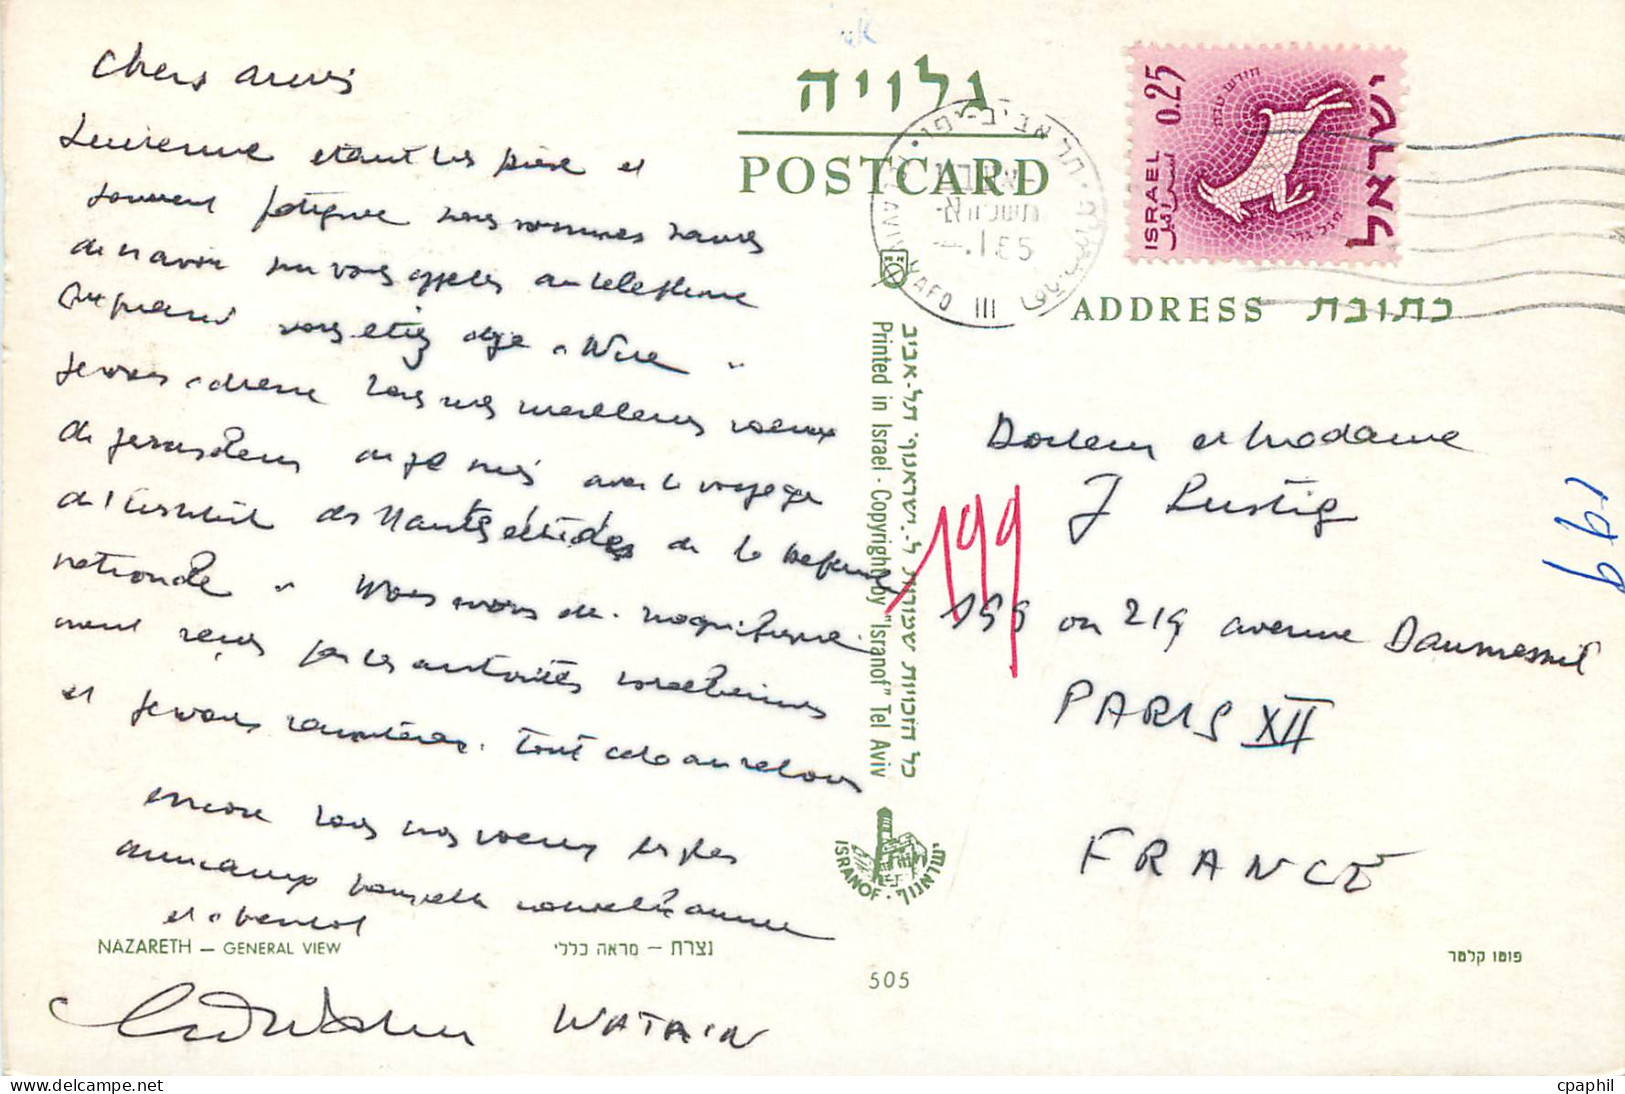 Chers amis
Lucienne étant très prise et
souvent fatiguée nous sommes navrés
de n'avoir pu vous appeler au téléphone
Je vous adresse tous nos meilleurs voeux
de Jerusalem où je suis avec le voyage
de l'institut des Hautes études de la Defense
nationale. Nous avons été magnifique
ment reçus par les autorités israeliennes
et je vous raconterai. tout cela au retour
encore tous nos voeux les plus
amicaux pour cette nouvelle année
et à bientot
WATRIN
NAZARETH — GENERAL VIEW
נצרת — מראה כללי
505
גלויה
POSTCARD
ISRAEL 0.25
ישראל
اسرائيل
מזל גדי
TEL AVIV YAFO III
ADDRESS כתובת
Printed in Israel - Copyright by "Isranof" Tel Aviv
כל הזכויות שמורות ל„ישראנוף" תל-אביב
ISRANOF · ישראנוף
Docteur et Madame
J Lustig
199
199 ou 219 avenue Daumesnil
PARIS XII
FRANCE
199
פוטו קלטר
cpaphil